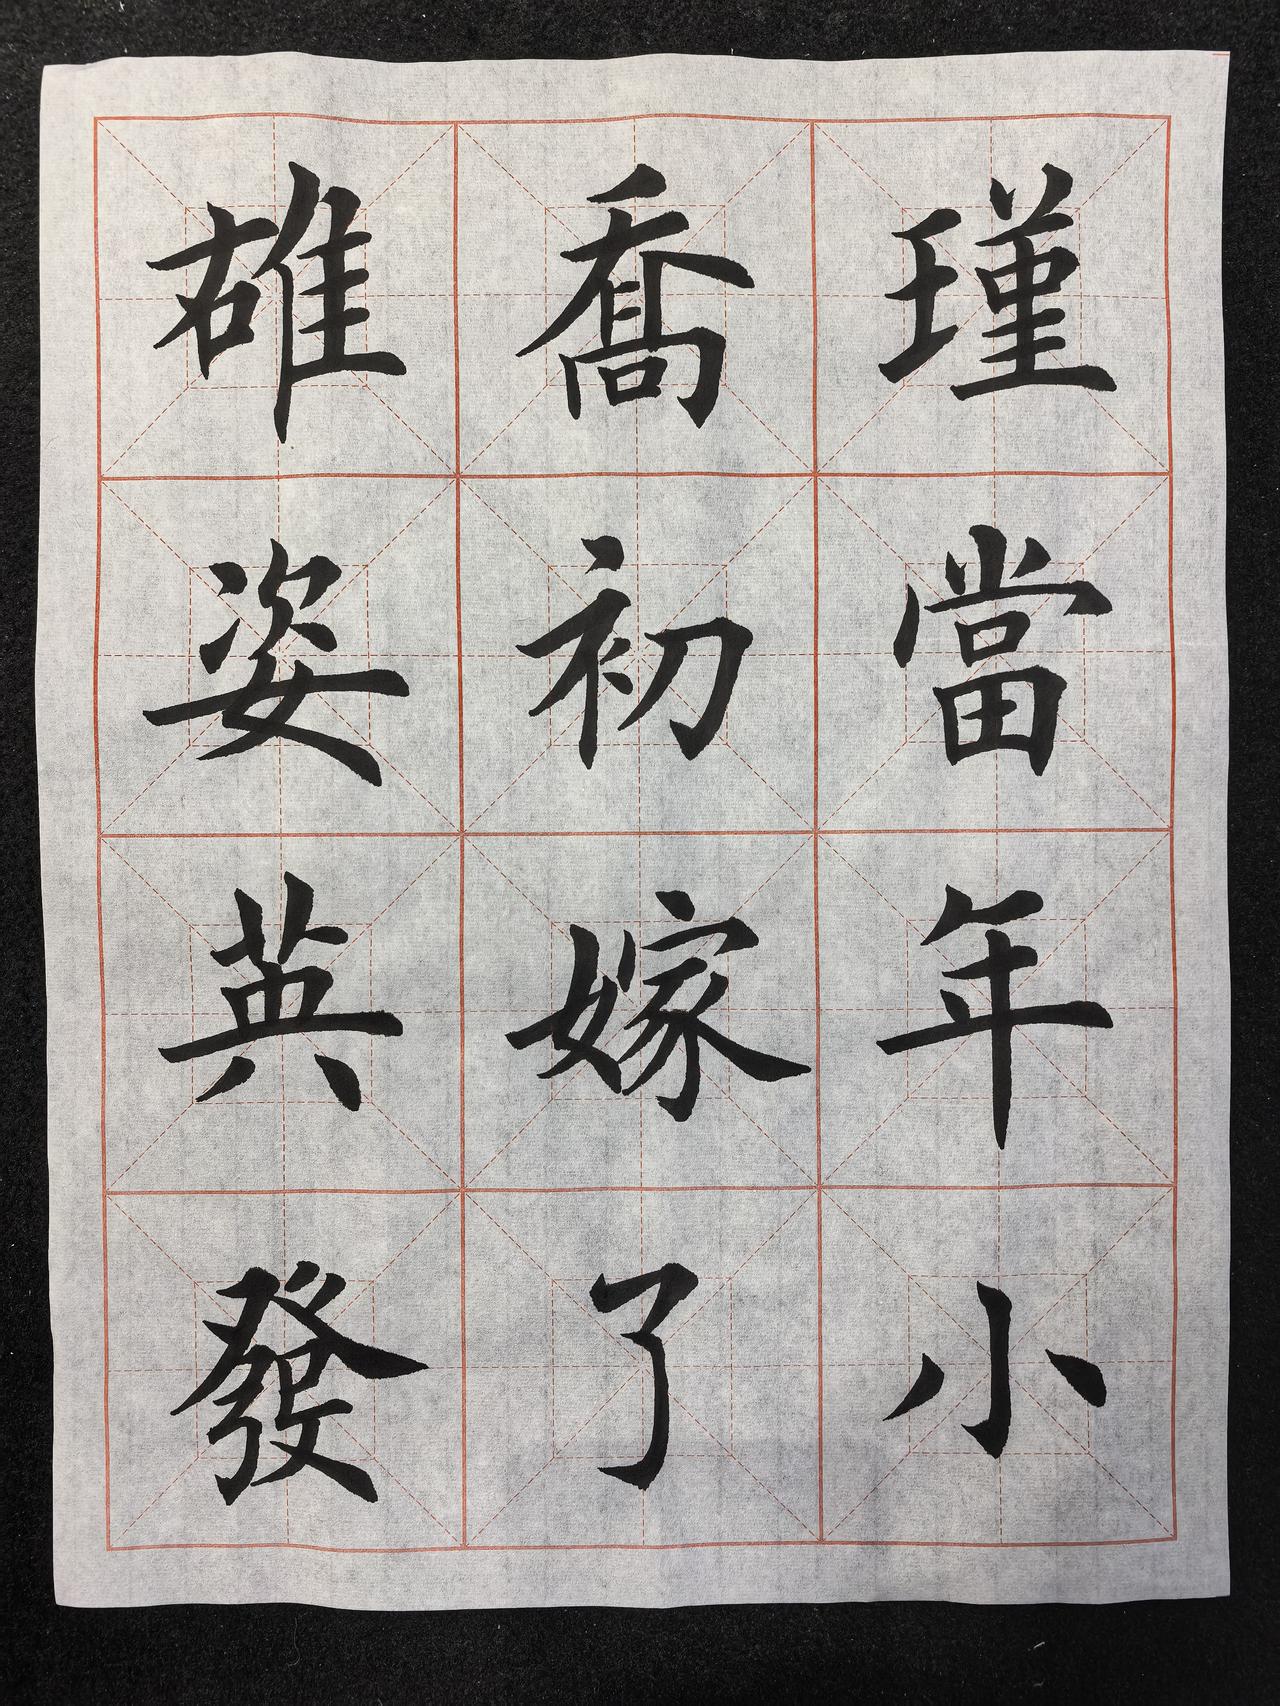 瑾當年小
喬初嫁了
雄姿英發